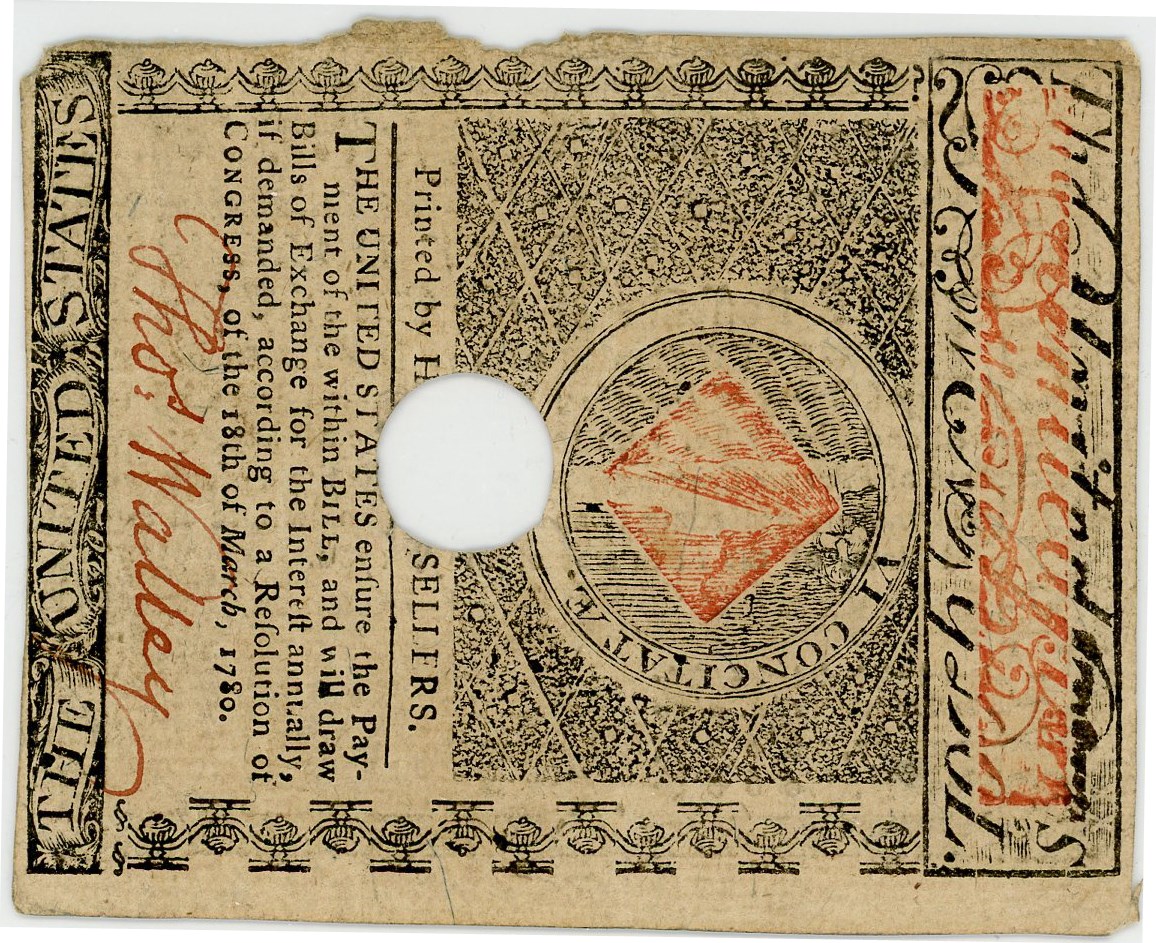 VI CONCITATÆ
Printed by H SELLERS.
THE UNITED STATES enſure the Pay-
ment of the within BILL, and will draw
Bills of Exchange for the Intereſt annually,
if demanded, according to a Reſolution of
CONGRESS, of the 18th of March, 1780.
Thos: Walley
THE UNITED STATES